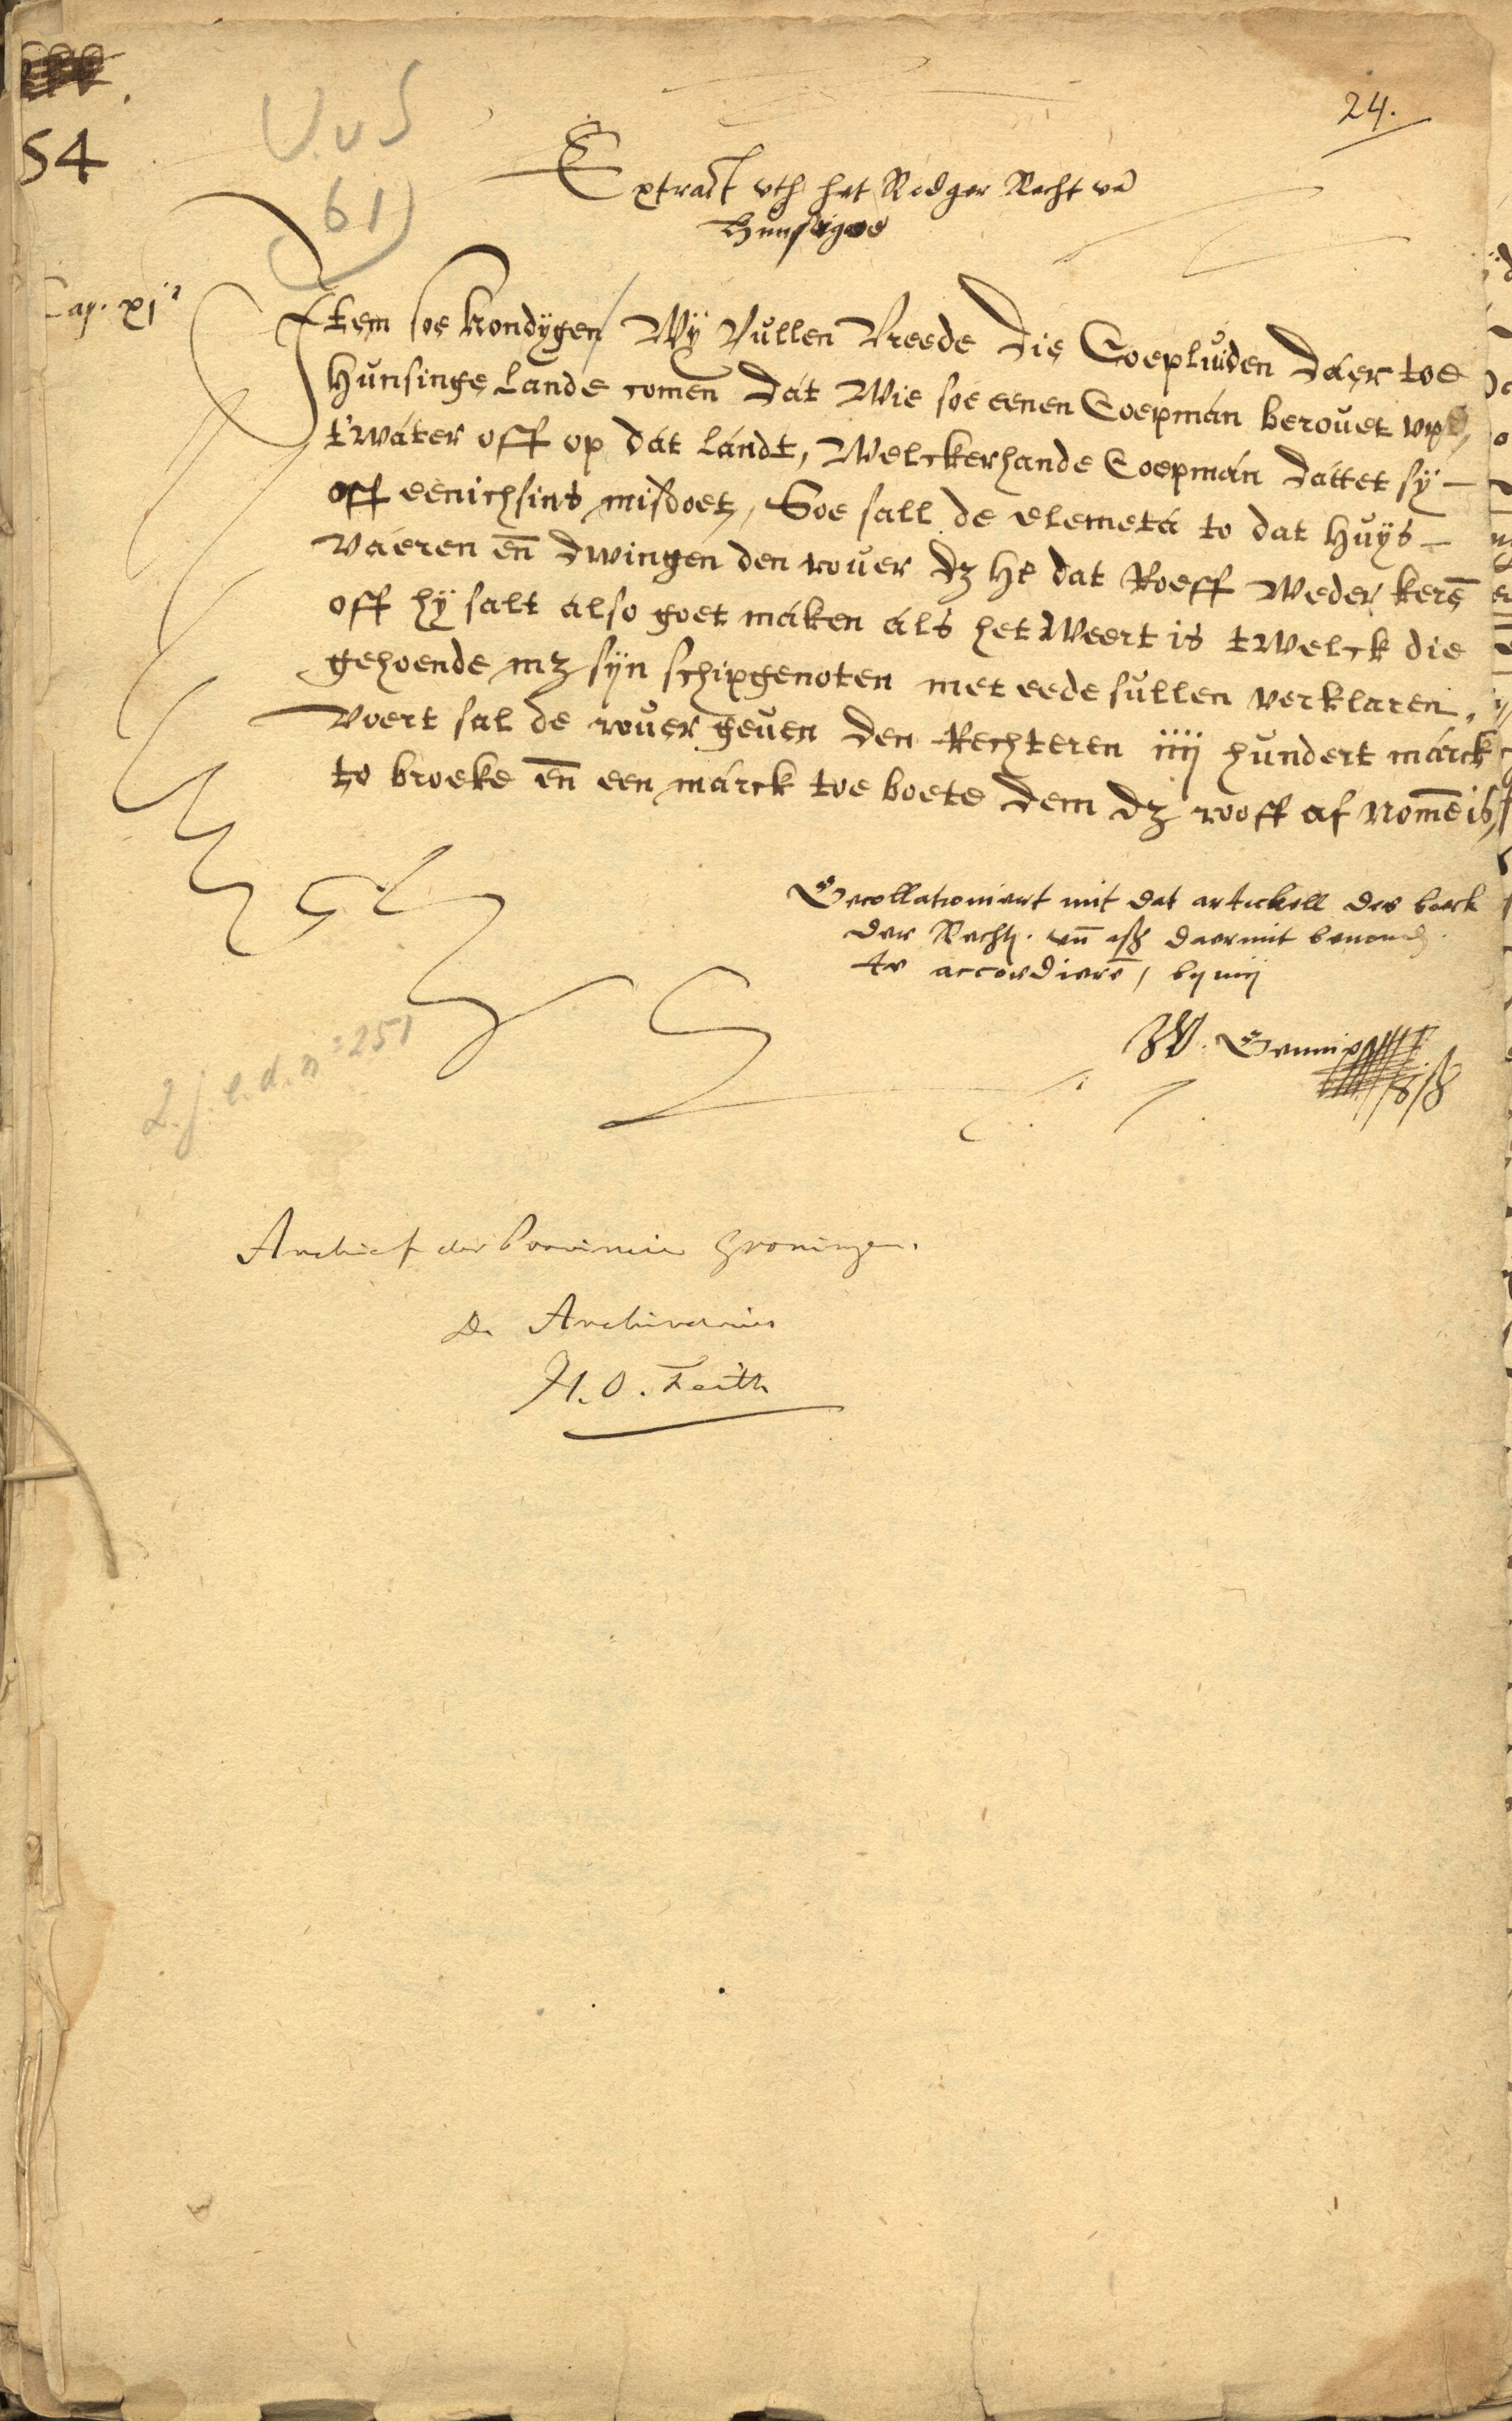 54
V.v S
61)
24.
Extract vth het Redger Recht vā
Hunsigoe
Cap. xi
Item soe kondÿgen Wÿ Vullen Vreede die Coepluiden daer toe
Hunsinge Lande comen dat Wie soe eenen Coepman berouet vp
t'water off op dat landt, Welckerhande Coepman dattet sÿ
off eenichsins misdoet, Soe sall de elemeta to dat Huÿs
Vaeren eñ dwingen den rouer dz he dat Roeff Weder kerē
off hÿ salt also goet maken als het Weert is tWelck die
gehoende mz sÿn schipgenoten met eede sullen verklaren.
Voert sal de rouer geuen den Rechteren iiij hundert marck
to broeke eñ een marck toe boete dem dz rooff af nomē is
Gecollationiert mit dat artickell des boeck
der Recht. vñ daermit
te accordierē, bij mij
2.j e.d. n° 251
Archief der Provincie Groningen.
De Archivarius
H.O. Feith